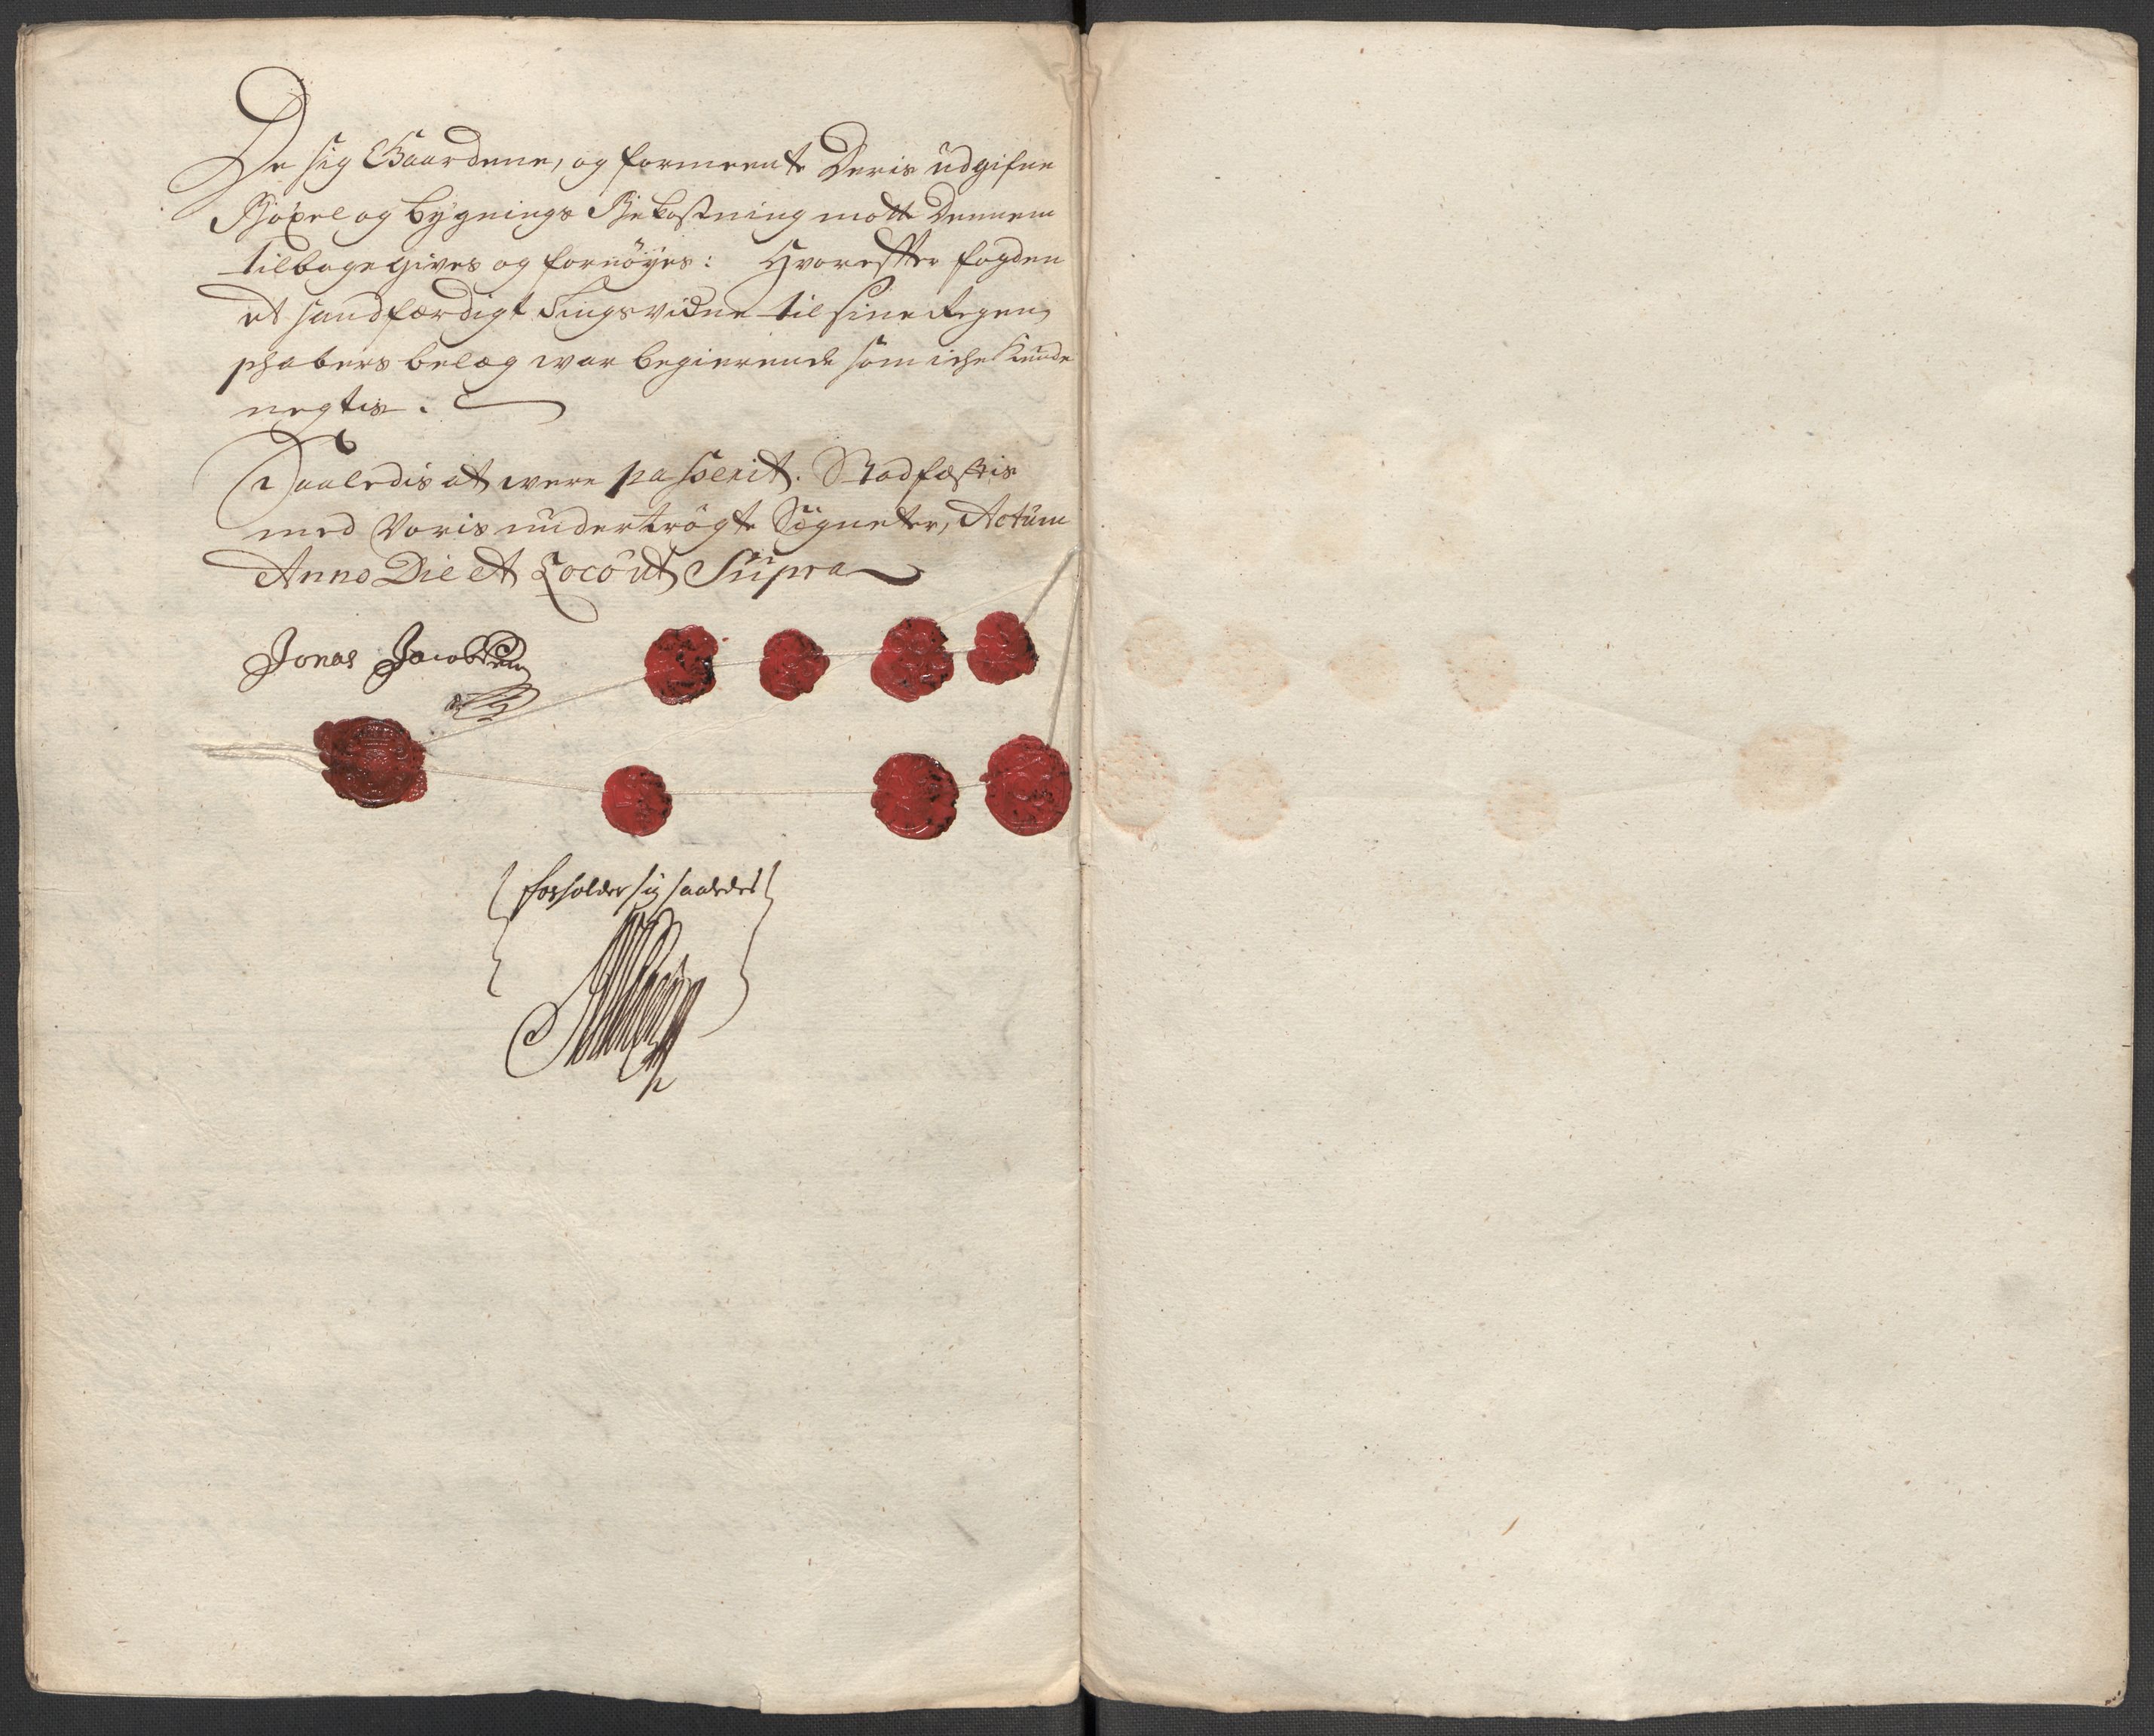 De sig Gaardene, og formeente Deris udgifne
Böxel og bygnings Bekostning motte Dennem
tilbagegives og fornöyes: Hvorefter fogden
et sandfærdigt Tingsvidne til sine Regen,
skabers belæg war begierende som iche Kunde
negtis.
Saaledis at were passerit. Stadfæstis
med Voris undertrögte Signeter, Actum
Anno Die et Loco ut Supra
Jonas Jacobsen
forholder sig saaledes